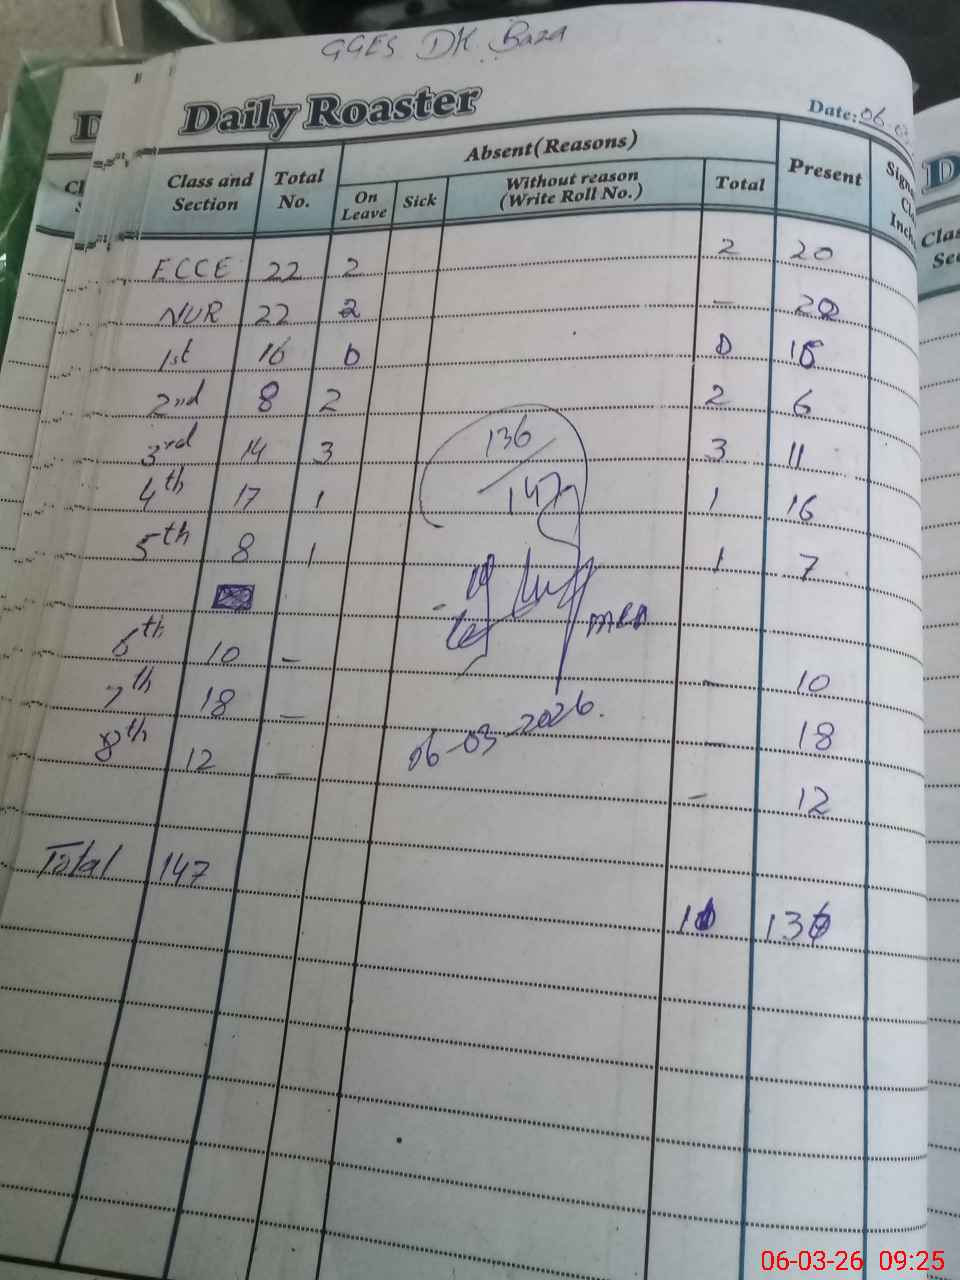 GGES DK Baza
Daily Roaster
Date: 06-0
Class and Section Total No. Absent (Reasons) Present
On Leave Sick Without reason (Write Roll No.) Total
ECCE 22 2 2 20
NUR 22 - 22
1st 16
2nd 8 2 2 6
3rd 14 3 3 11
136
4th 17 1 1 16
147
5th 8 1 1 7
6th 10 - - 10
7th 18 - - 18
06-03-2026.
8th 12 - - 12
Total 147 136
06-03-26 09:25